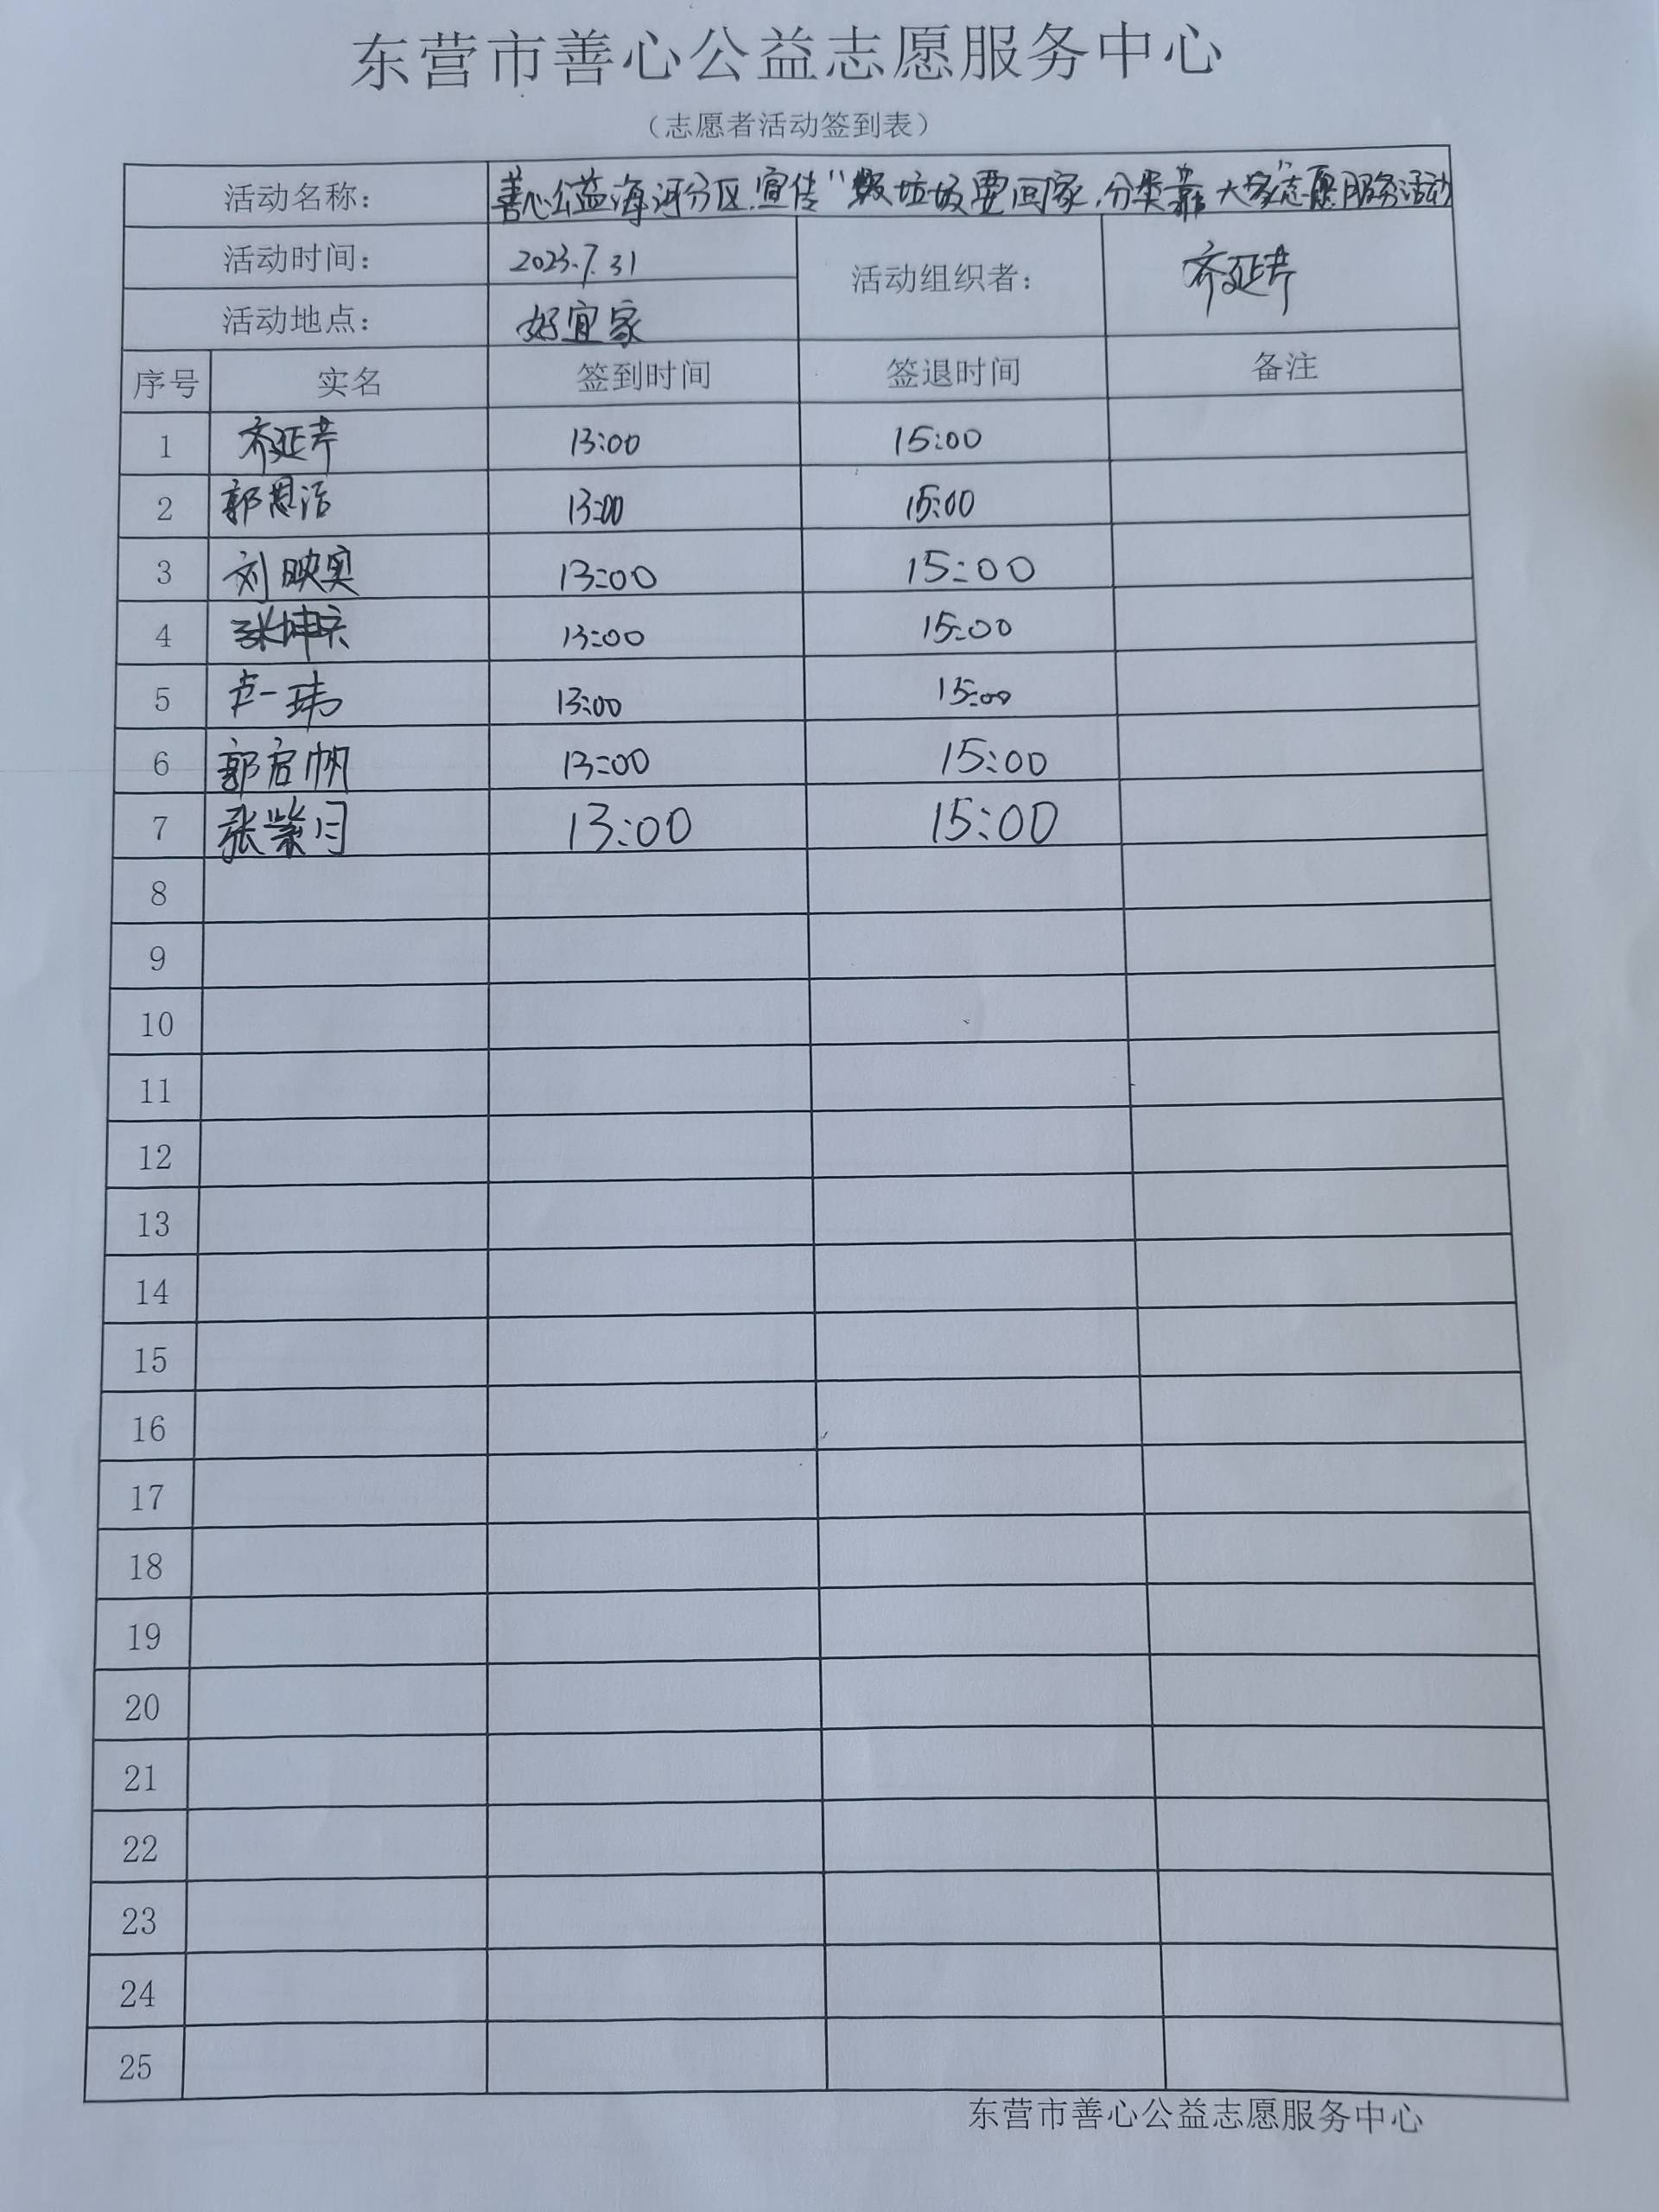 东营市善心公益志愿服务中心
（志愿者活动签到表）
活动名称： 善心公益海河分区宣传“垃圾要回家，分类靠大家”志愿服务活动
活动时间： 2023.7.31 活动组织者： 齐延芹
活动地点： 好宜家
序号 实名 签到时间 签退时间 备注
1 齐延芹 13:00 15:00
2 郭思洁 13:00 15:00
3 刘映奕 13:00 15:00
4 张坤 13:00 15:00
5 卢一玮 13:00 15:00
6 郭启帆 13:00 15:00
7 张紫月 13:00 15:00
8
9
10
11
12
13
14
15
16
17
18
19
20
21
22
23
24
25
东营市善心公益志愿服务中心